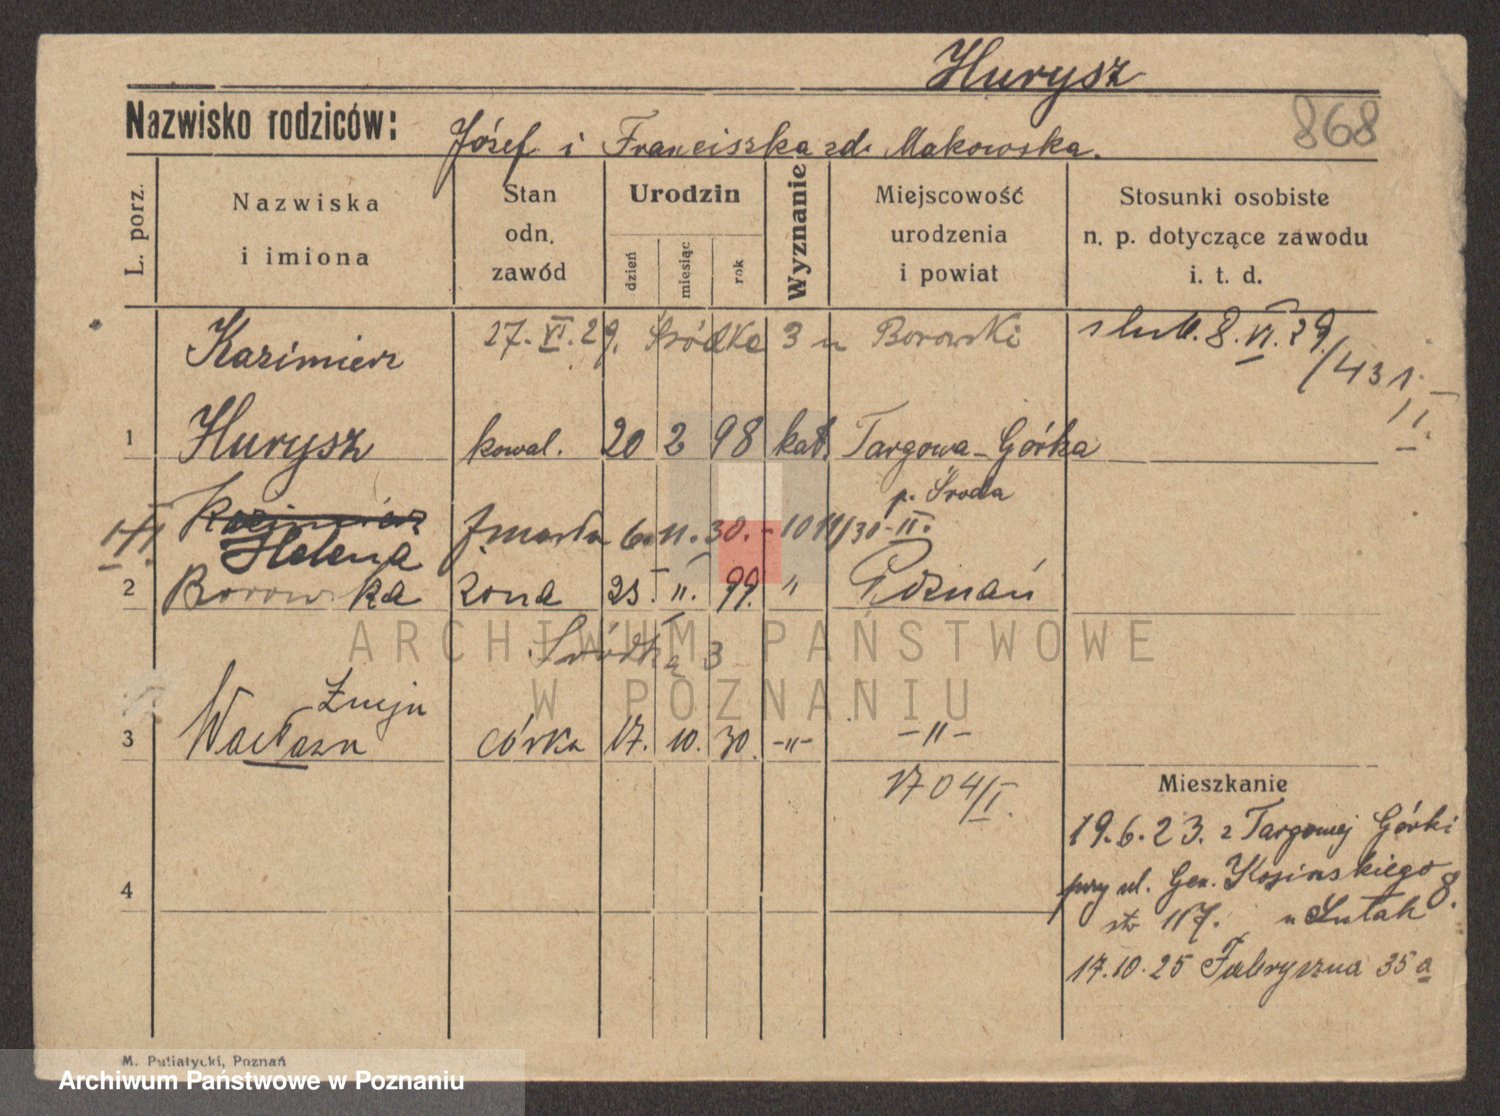 Hurysz
868
Nazwisko rodziców:
Józef i Franciszka zd. Makowska.
L. porz.
Nazwiska
i imiona
Stan
odn.
zawód
Urodzin
dzień
miesiąc
rok
Wyznanie
Miejscowość
urodzenia
i powiat
Stosunki osobiste
n. p. dotyczące zawodu
i. t. d.
27. VI. 29. Śródka 3 u Borowski
ślub. 8. VI. 29.
/431.
II.
Kazimierz
1 Hurysz kowal. 20 2 98 kat. Targowa-Górka
p. Środa
Kazimierz
Zmarła 6. 11. 30. - 1011/30-II.
Helena
2 Borowska żona 25. II. 99. " Poznań
Śródka 3
3 Wacława córka 17. 10. 30. -"- -"-
1704/I.
4
Mieszkanie
19. 6. 23. z Targowej Górki
przy ul. Gen. Kosińskiego 8.
str 117. u
17. 10. 25 Fabryczna 35 a
M. Putiatycki, Poznań
ARCHIWUM PAŃSTWOWE
W POZNANIU
Archiwum Państwowe w Poznaniu